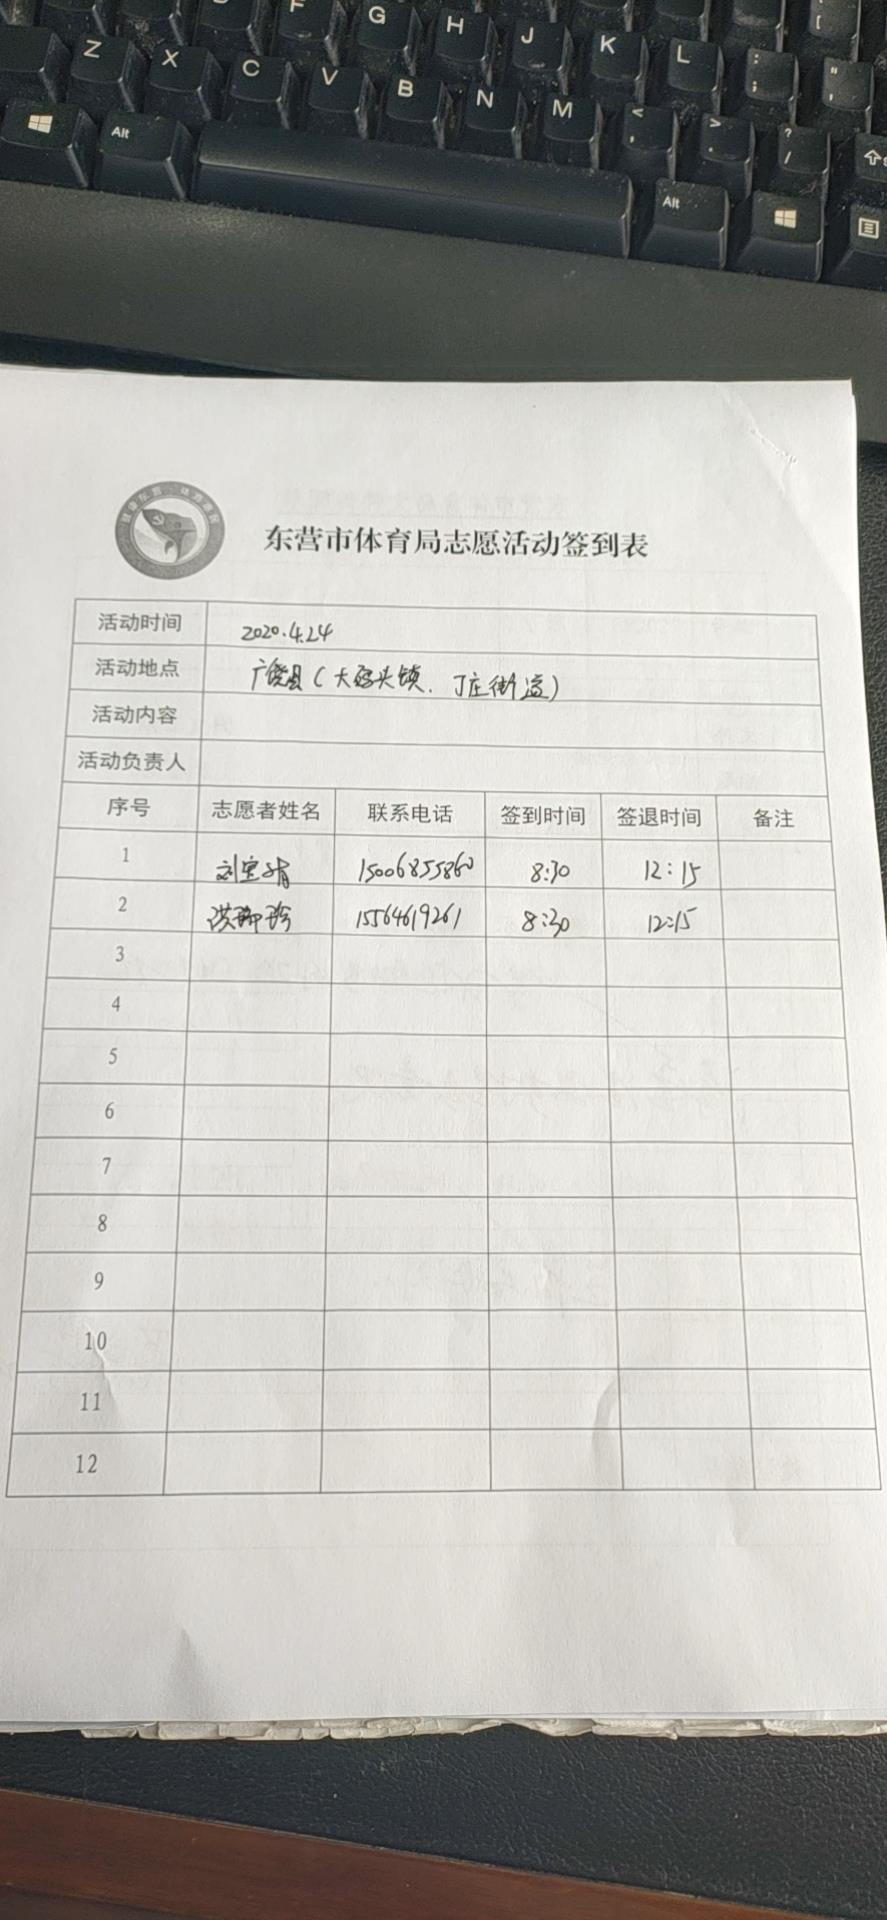 F G H J K L : ; " '
Z X C V B N M < , > . ? /
Alt Alt
东营市体育局志愿活动签到表
活动时间 2020.4.24
活动地点 广饶县(大码头镇、丁庄街道)
活动内容
活动负责人
序号 志愿者姓名 联系电话 签到时间 签退时间 备注
1 刘宝娟 15006855860 8:30 12:15
2 15564619261 8:30 12:15
3
4
5
6
7
8
9
10
11
12